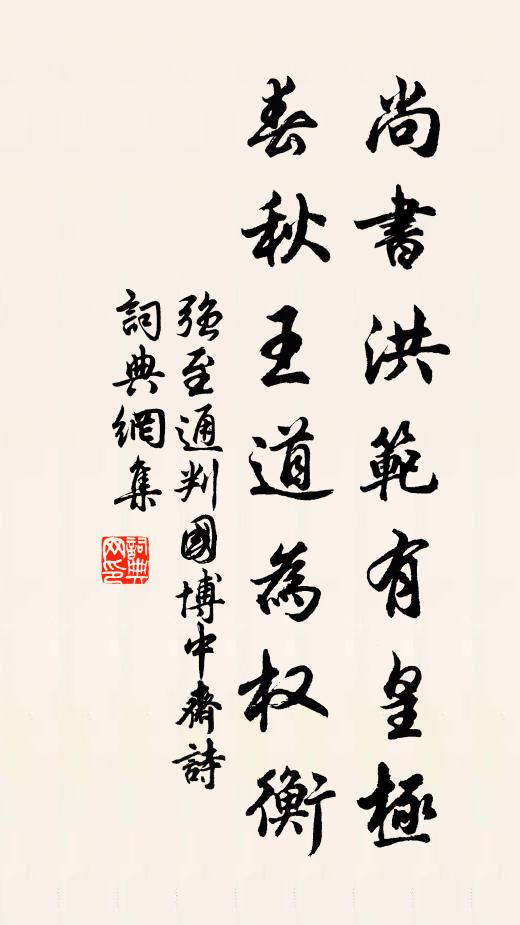 尚書洪範有皇極
春秋王道為权衡
強至通判國博中齋詩
詞典網集
詞典网印